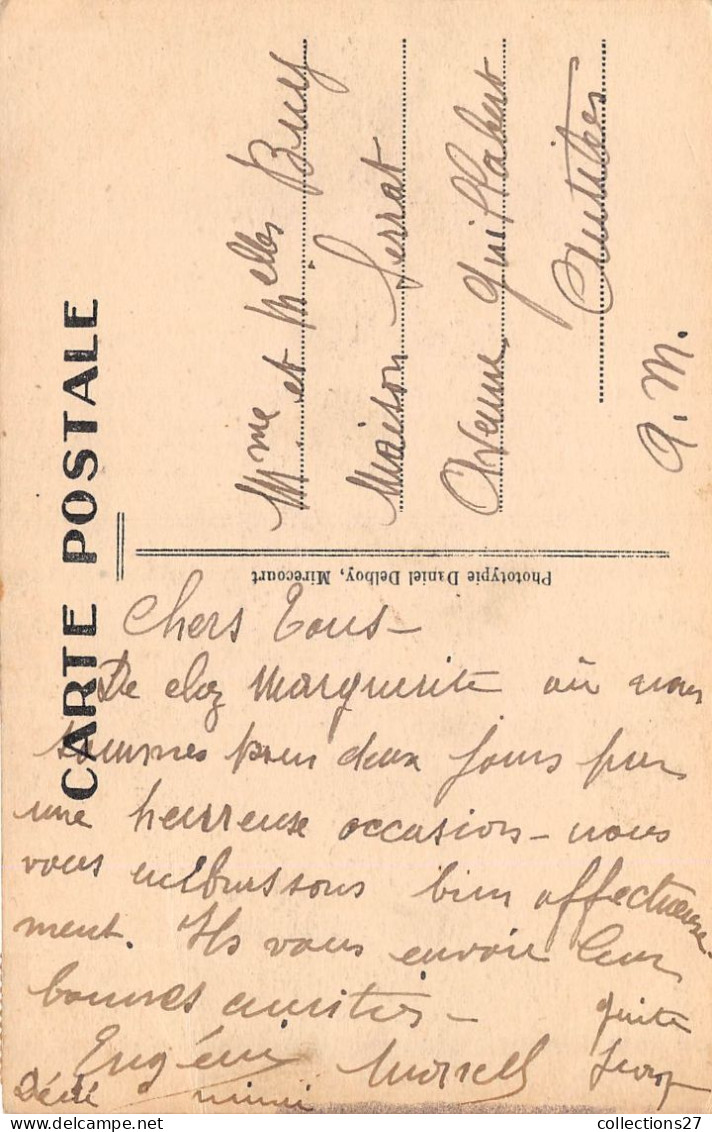 CARTE POSTALE
Mme et Melles Bucy
Maison Serrat
Avenue Guillabert
Antibes
A. M.
Phototypie Daniel Delboy, Mirecourt
Chers Tous -
De chez Marguerite où nous
sommes pour deux jours par
une heureuse occasion - nous
vous embrassons bien affectueuse-
ment. Ils vous envoie leur
bonnes amitiés -
Guite
Eugénie Marcel
Dédé mimi
collections27